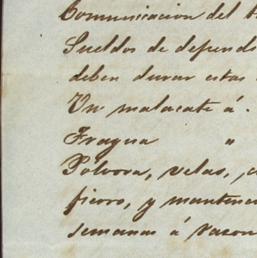 Comunicacion del
Sueldos de depend
deben durar estas
Un malacate á.
Fragua "
Pólvora, velas,
fierro, y manten
semanas á razon